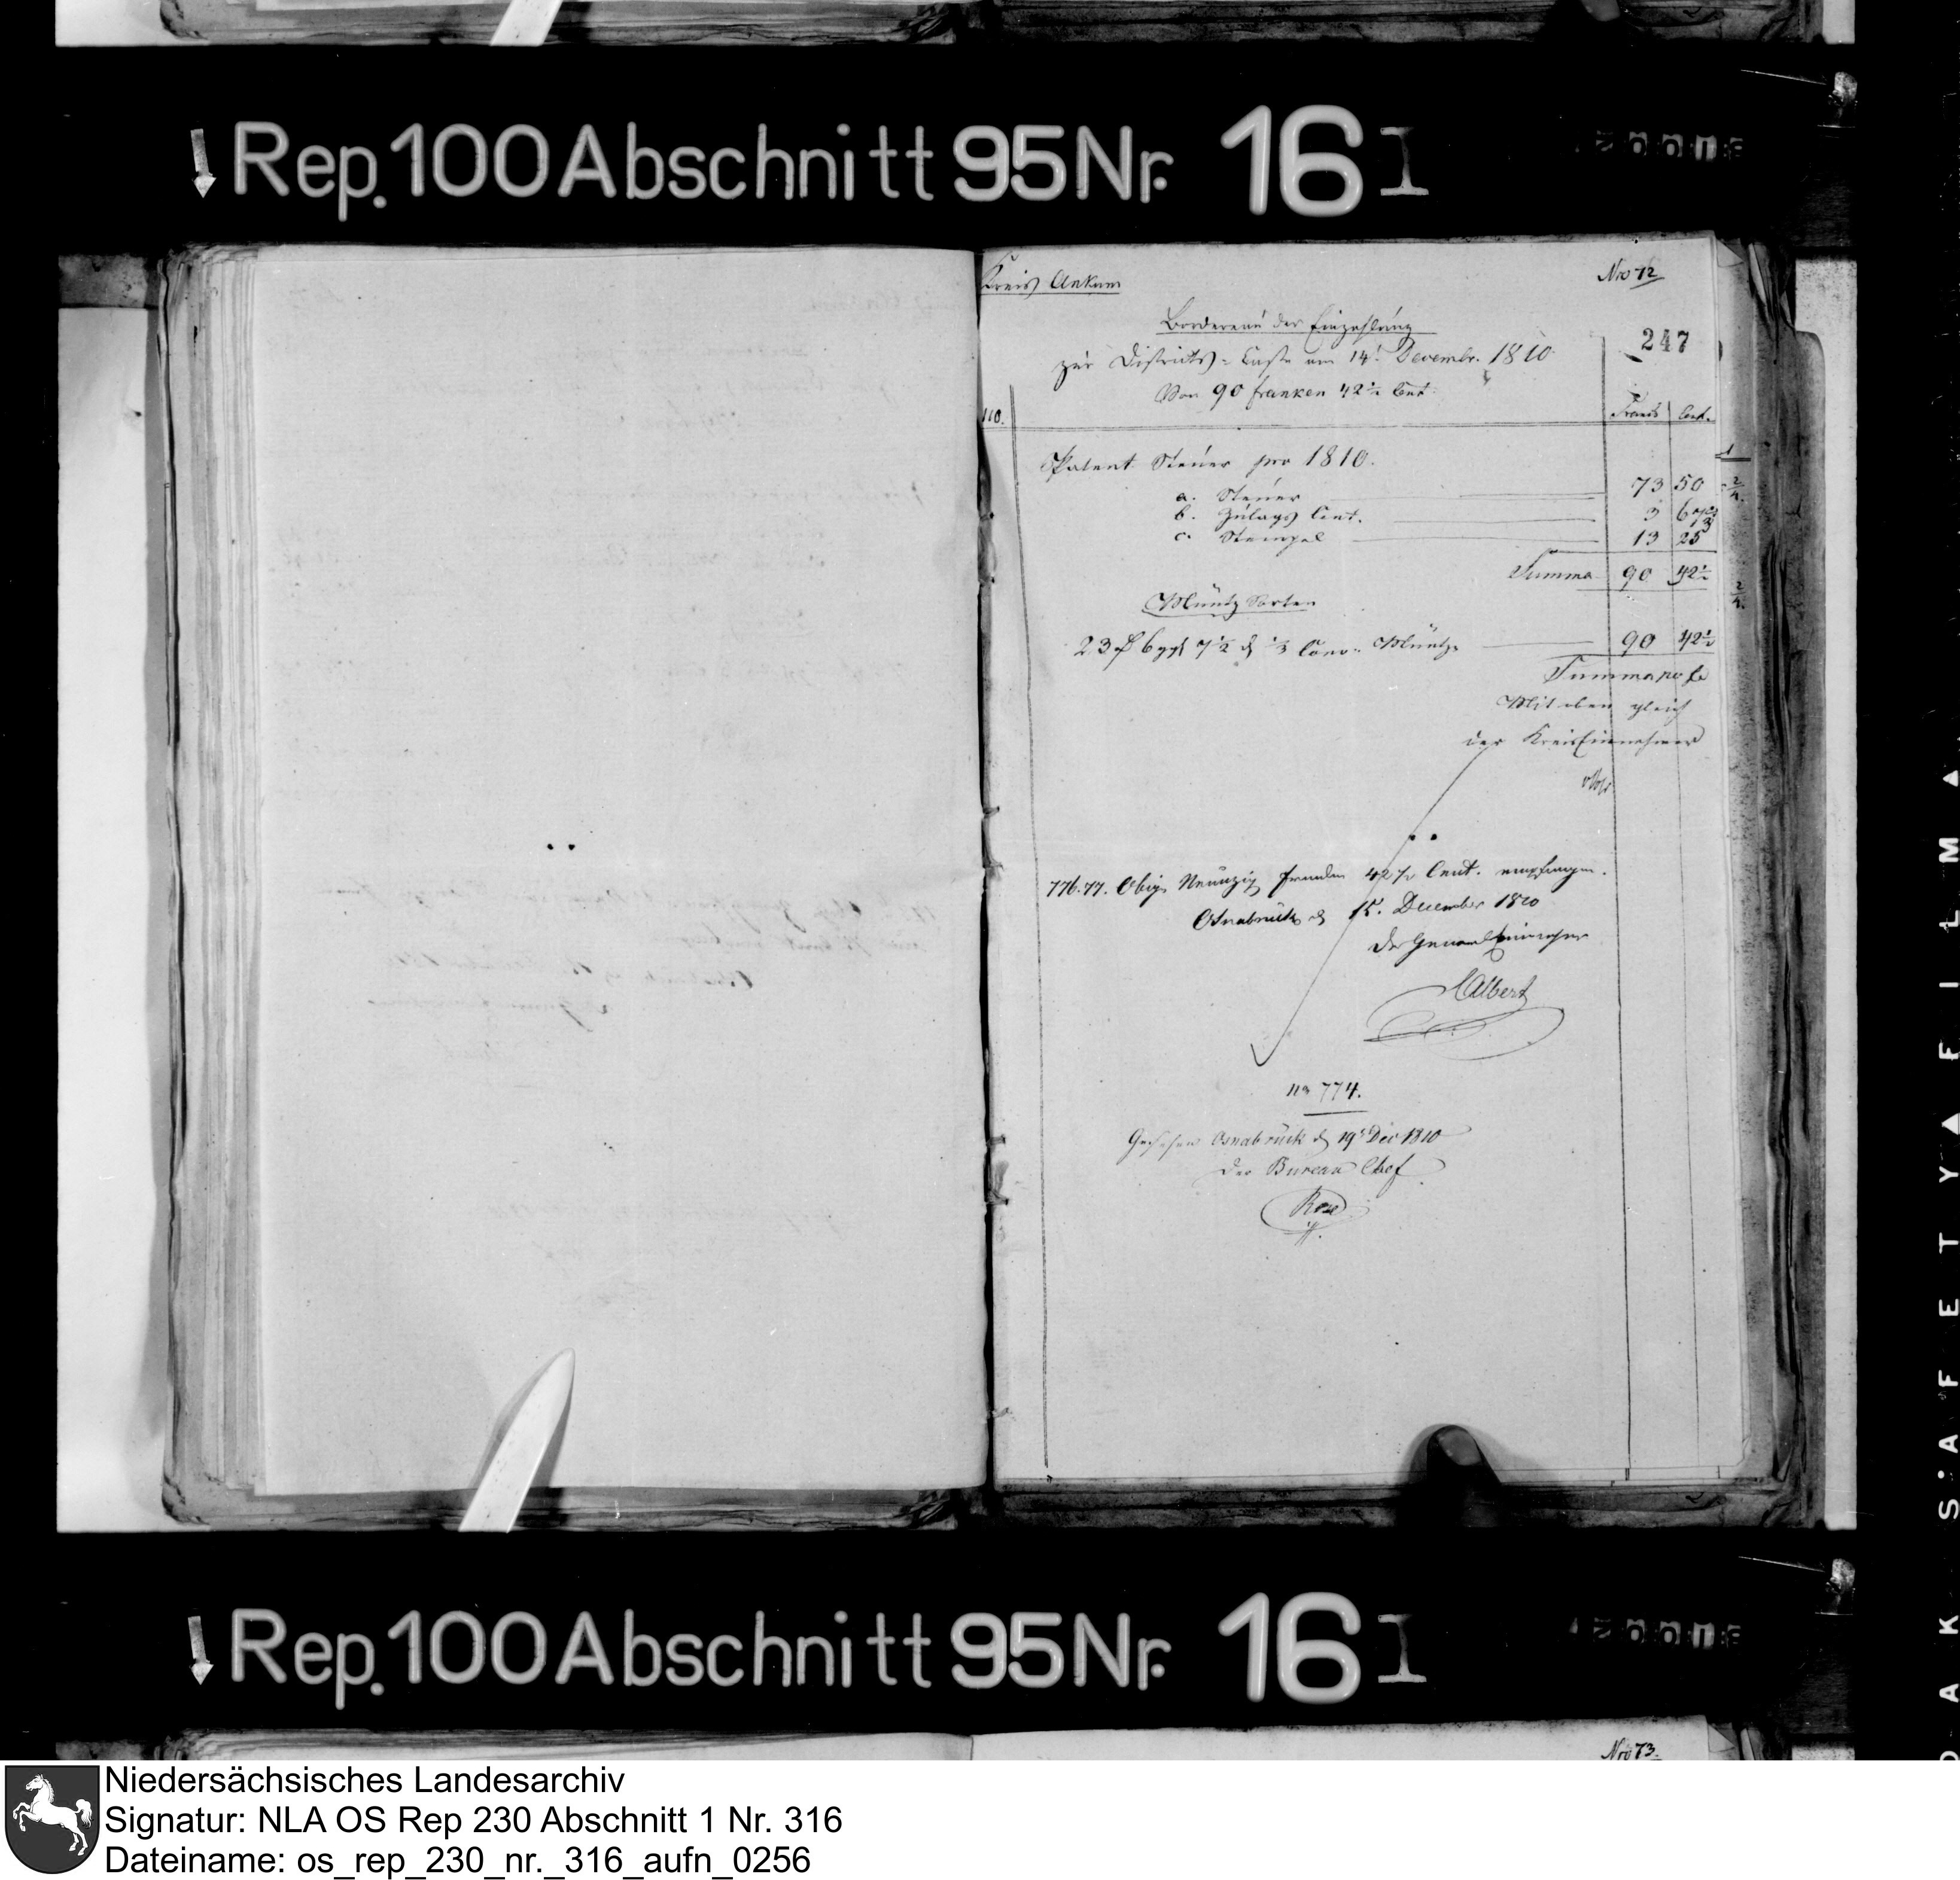 Rep. 100 Abschnitt 95 Nr. 16 I
Kreis Ankum
Nro 72
247
Bordereau der Einzahlung
zur Districts-Casse am 14t Decembr. 1810
Von 90 franken 42½ Cent.
110.
Francs Cent.
Patent Steuer pro 1810.
a. Steuer 73 50
b. Zulags Cent. 3
c. Stempel 13 25
Summa 90 42½
Müntz Sorten
23 6 ggl 7½ d Conv. Müntze 90 42½
Summa
Mit oben gleich
der Kreis Einnehmer
776.77. Obige Neunzig franken 42½ Cent. empfangen.
Osnabrück d 15. December 1810
Der General Einnehmer
Albert
no 774.
Gesehen Osnabrück d 19t Dec 1810
Der Bureau Chef
Rose
Rep. 100 Abschnitt 95 Nr. 16 I
Nro 73.
SAFETY FILM
Niedersächsisches Landesarchiv
Signatur: NLA OS Rep 230 Abschnitt 1 Nr. 316
Dateiname: os_rep_230_nr._316_aufn_0256